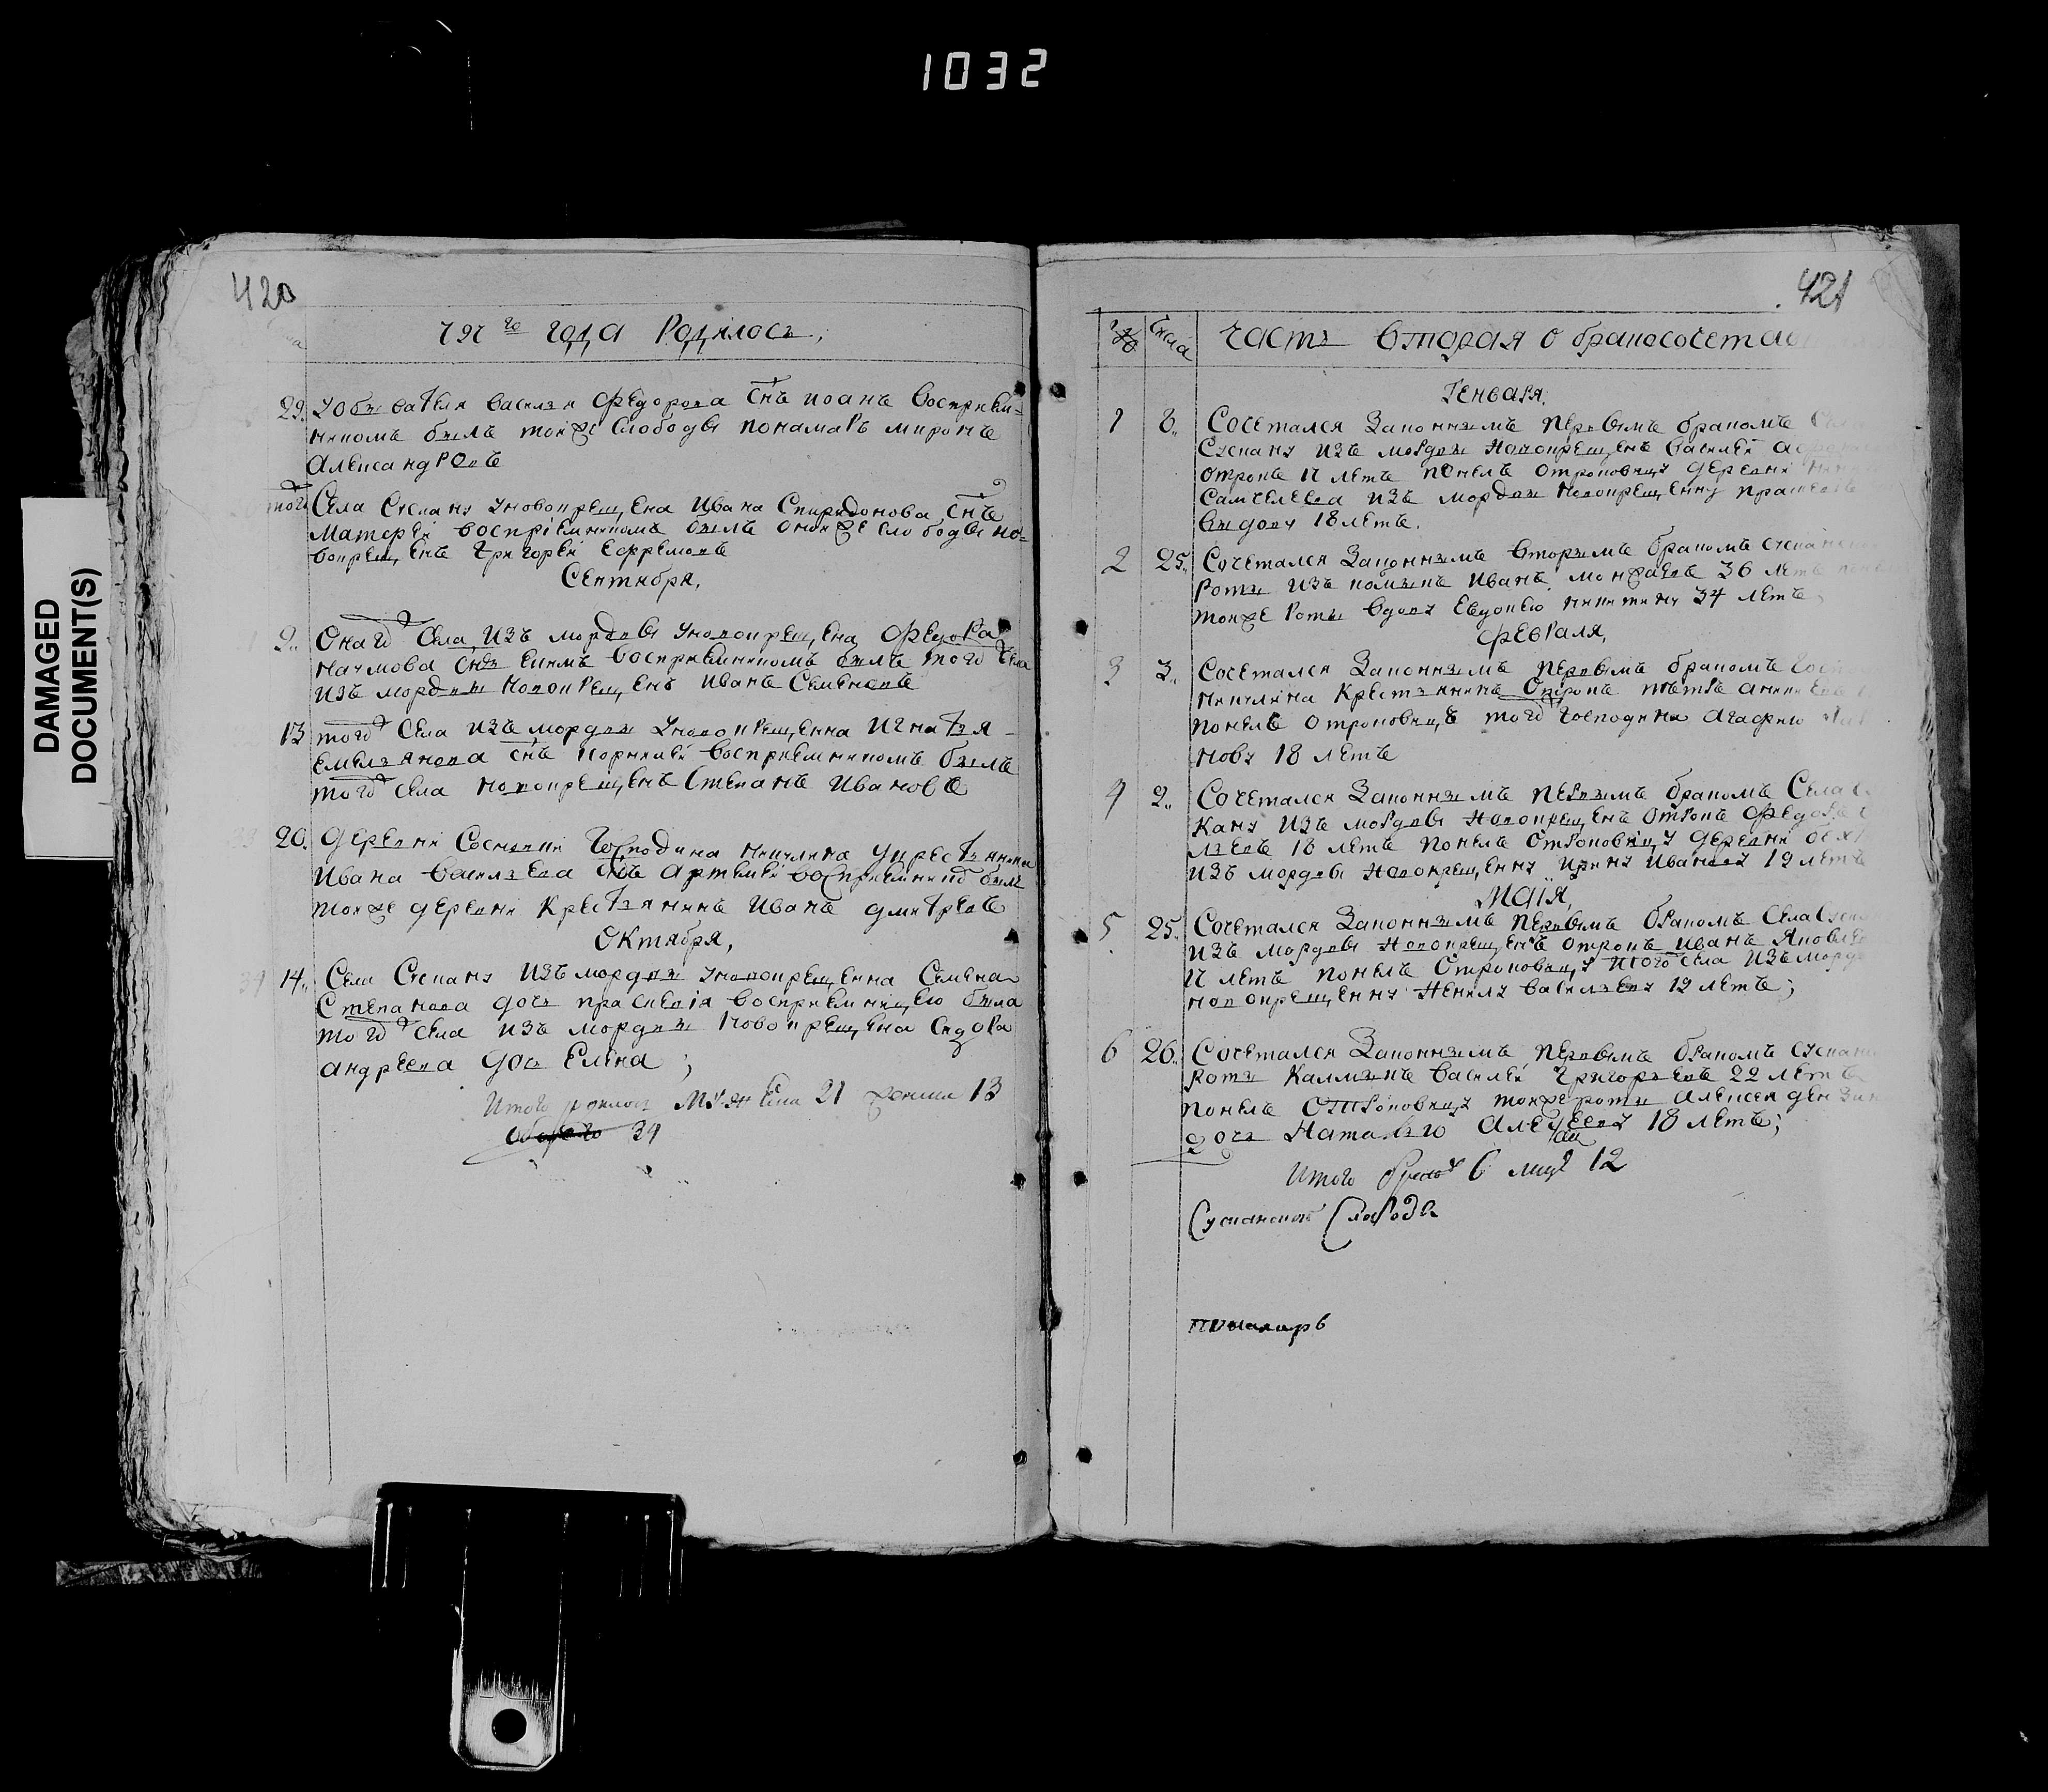 1032
DAMAGED
DOCUMENT(S)
420
го года родилось,
29. Василья Федорова снъ иоанъ восприем=
никомъ былъ тойже слободы понамарь миронъ
александровъ
того Села Сускану уновокрещена Ивана Спиридонова снъ
матфей восприемникомъ былъ онойже слободы но=
вокрещенъ григорей ефремовъ
Сентября,
2.. Онагѡ села изъ мордвы уновокрещена федора
наумова снъ восприемникомъ былъ тогѡ села
изъ мордвы новокрещенъ иванъ семеновъ
13 тогѡ села изъ мордвы уновокрещенна игнатья
емельянова снъ корнилей восприемникомъ былъ
тогѡ села новокрещенъ степанъ ивановъ
20. деревни Сосновки господина никулина укрестьянина
ивана васильева снъ артемей восприемникъ былъ
тоиже деревни крестьянинъ иванъ дмитревъ
Октября,
34 14.. Села Сускану изъ мордвы уновокрещенна семена
Степанова дочь праскевія восприемницею была
тогѡ села изъ мордвы новокрещена сидора
андреева дочь елена ;
Итого родилось 21 женска 13
обоего 34
421
часть вторая о бракосочета
Генваря.
1 8.. Сочетался законнымъ первымъ бракомъ
Сускану изъ мордвы новокрещенъ василей
отрокъ лѣтъ понелъ отроковицу деревни
самчелеева изъ мордвы новокрещенну
18 летъ.
2 25.. Сочетался законнымъ вторымъ бракомъ
роты изъ калмыкъ иванъ 36 летъ
тойже роты вдову евдокею никитину 34 летъ;
февраля,
3 3.. Сочетался законнымъ первымъ бракомъ
никулина крестьянинъ отрокъ петръ
понелъ отроковицъ тогѡ господина агафию
нову 18 летъ
4 2.. Сочетался законнымъ первымъ бракомъ села
кану изъ мордвы новокрещенъ отрокъ федоръ
льевъ 18 летъ понелъ отроковицу деревни
изъ мордвы новокрещенну ирину иванову 19 летъ
маія,
5 25.. Сочетался законнымъ первымъ бракомъ села
изъ мордвы новокрещенъ отрокъ иванъ яковле
летъ понелъ отроковицу тогѡ села изъ морд
новокрещенну ненилу васильеву 19 летъ;
6 26.. Сочетался законнымъ первымъ бракомъ
роты калмыкъ василей григорьевъ 22 летъ
понелъ отроковицу тойже роты алексея
дочь наталью алексееву 18 летъ;
Итого браковъ 6 лицъ 12
Сусканской слободы
пономарь